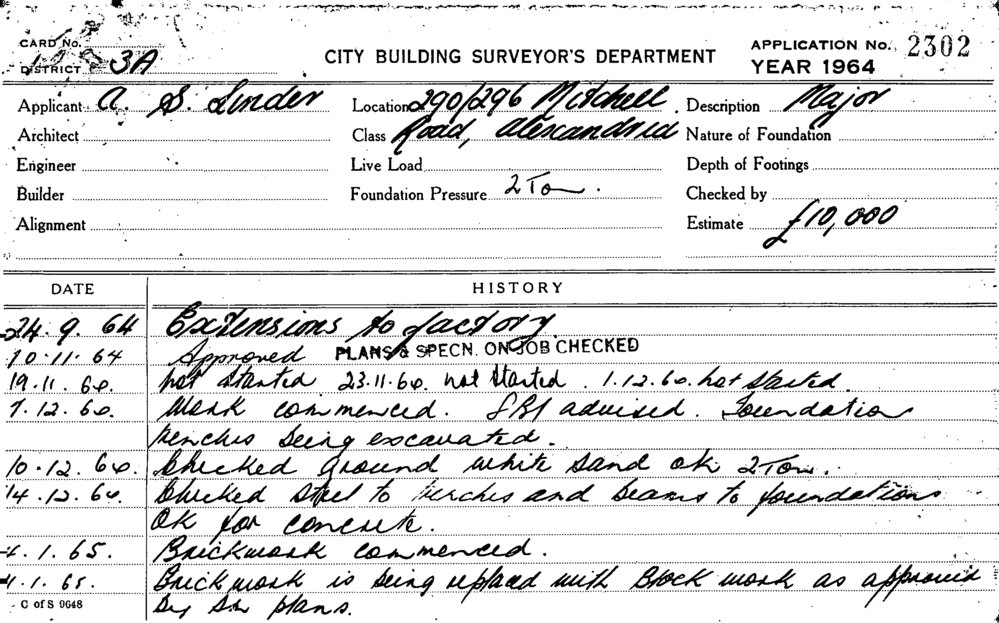 CARD No.
DISTRICT 3A
CITY BUILDING SURVEYOR'S DEPARTMENT
APPLICATION No. 2302
YEAR 1964
Applicant A. S. Linder Location 290/296 Mitchell Description Major
Architect Class Road, Alexandria Nature of Foundation
Engineer Live Load Depth of Footings
Builder Foundation Pressure 2 Ton. Checked by
Alignment Estimate £10,000
DATE HISTORY
24.9.64 Extensions to factory.
10.11.64 Approved PLANS & SPECN. ON JOB CHECKED
19.11.64. not started 23.11.64. not started. 1.12.64. not started.
7.12.64. Work commenced. advised. Foundation
trenches being excavated.
10.12.64. Checked ground white sand ok 2 Ton.
14.12.64. Checked steel to trenches and beams to foundations
OK for concrete.
4.1.65. Brickwork commenced.
4.1.65. Brickwork is being replaced with Block work as approved
by plans.
C of S 9648